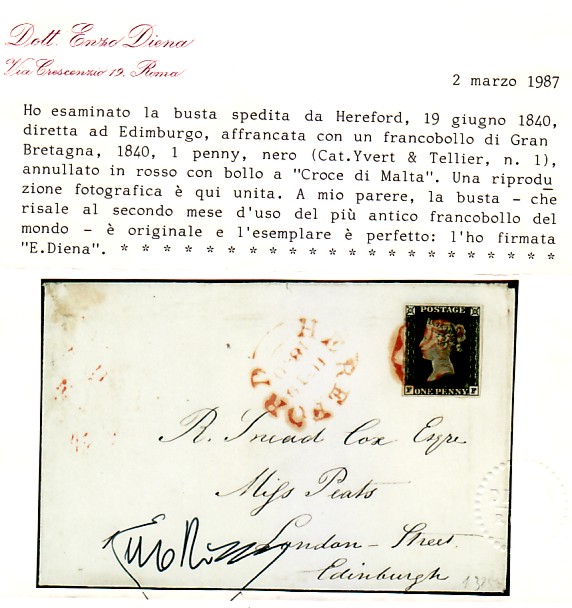 Dott. Enzo Diena
Via Crescenzio 19. Roma
2 marzo 1987
Ho esaminato la busta spedita da Hereford, 19 giugno 1840,
diretta ad Edimburgo, affrancata con un francobollo di Gran
Bretagna, 1840, 1 penny, nero (Cat.Yvert & Tellier, n. 1),
annullato in rosso con bollo a "Croce di Malta". Una riprodu
zione fotografica è qui unita. A mio parere, la busta - che
risale al secondo mese d'uso del più antico francobollo del
mondo - è originale e l'esemplare è perfetto: l'ho firmata
"E.Diena". * * * * * * * * * * * * * * * * * * *
POSTAGE
F ONE PENNY F
HEREFORD
R. Snead Cox Esqre
Miss Peats
London - Street.
Edinburgh